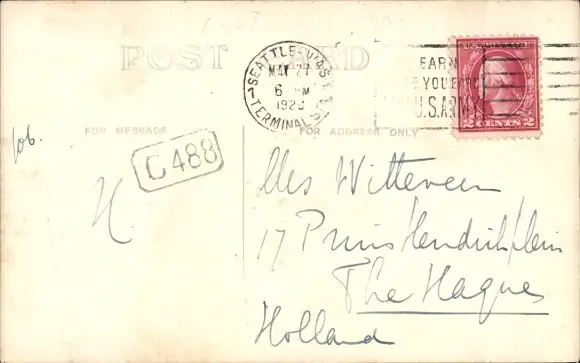 POST CARD
SEATTLE, WASH.
MAY 27
6 PM
TERMINAL STA.
EARN
U.S. ARMY
2 CENTS 2
FOR MESSAGE
FOR ADDRESS ONLY
C 488
Witteveen
17 Prins Hendrikplein
The Hague
Holland